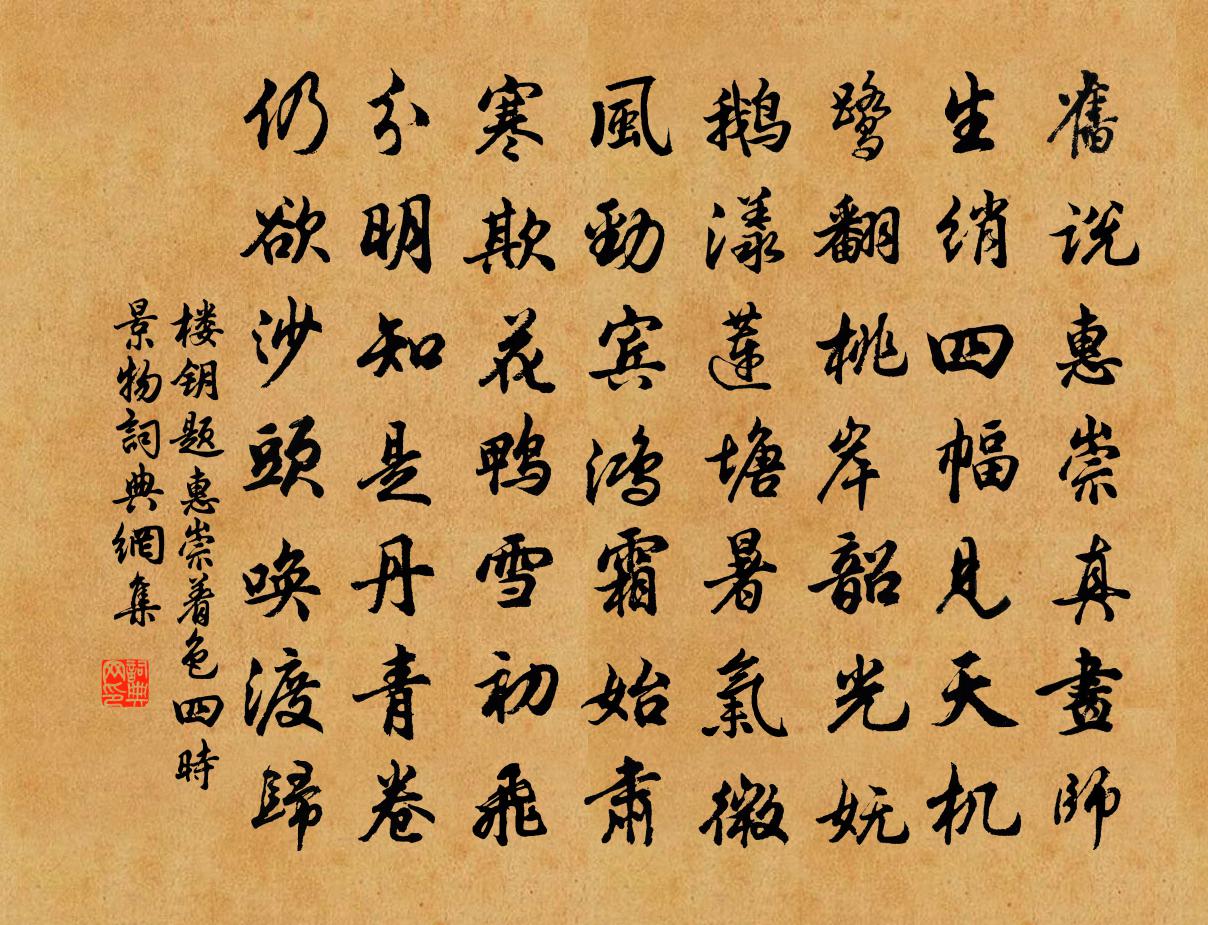 舊说惠崇真畫師
生绡四幅見天机
鹭翻桃岸韶光妩
鹅漾蓮塘暑氣微
風勁宾鸿霜始肅
寒欺花鸭雪初飛
分明知是丹青卷
仍欲沙頭唤渡歸
楼钥题惠崇着色四時
景物詞典網集
詞典網印